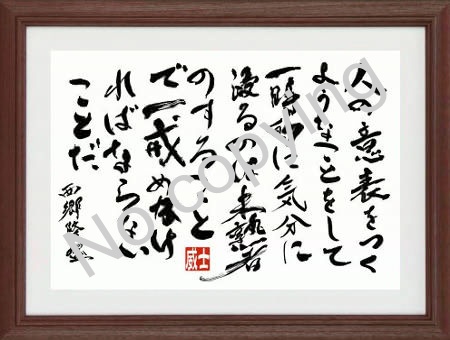 人の意表をつく
ようなことをして
一時的に気分に
浸るのは未熟者
のすること
で戒めなけ
ればならない
ことだ
西郷隆盛
威士
No copying